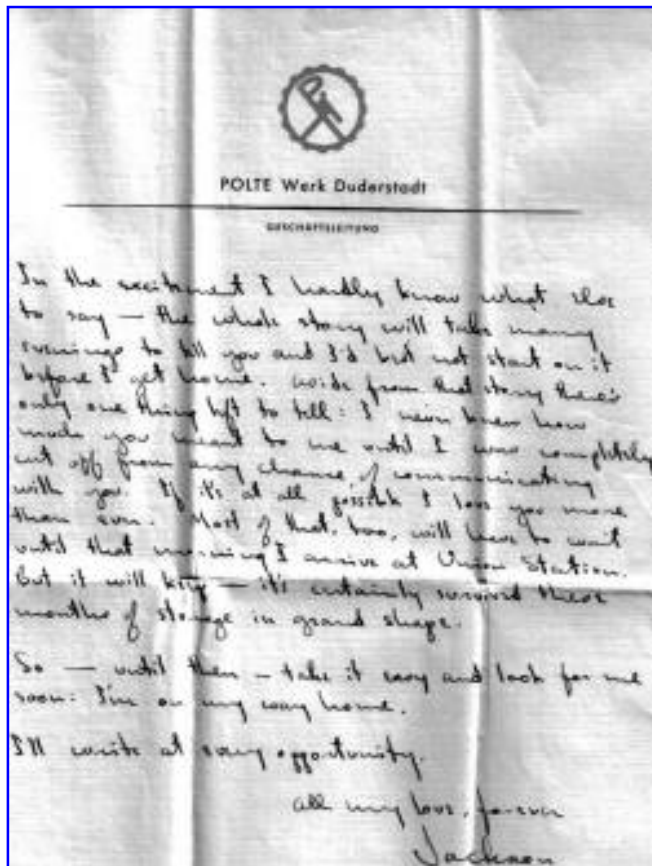 POLTE Werk Duderstadt
GESCHÄFTSLEITUNG
In the excitement I hardly know what else
to say — the whole story will take many
evenings to tell you and I'd but not start on it
before I get home. Aside from that story there's
only one thing left to tell: I never knew how
much you meant to me until I was completely
cut off from any chance of communicating
with you. If it's at all possible I love you more
than ever. Most of that, too, will have to wait
until that morning I arrive at Union Station.
But it will keep — it's certainly survived these
months of storage in grand shape.
So — until then — take it easy and look for me
soon: I'm on my way home.
I'll write at every opportunity.
All my love, forever
Jackson